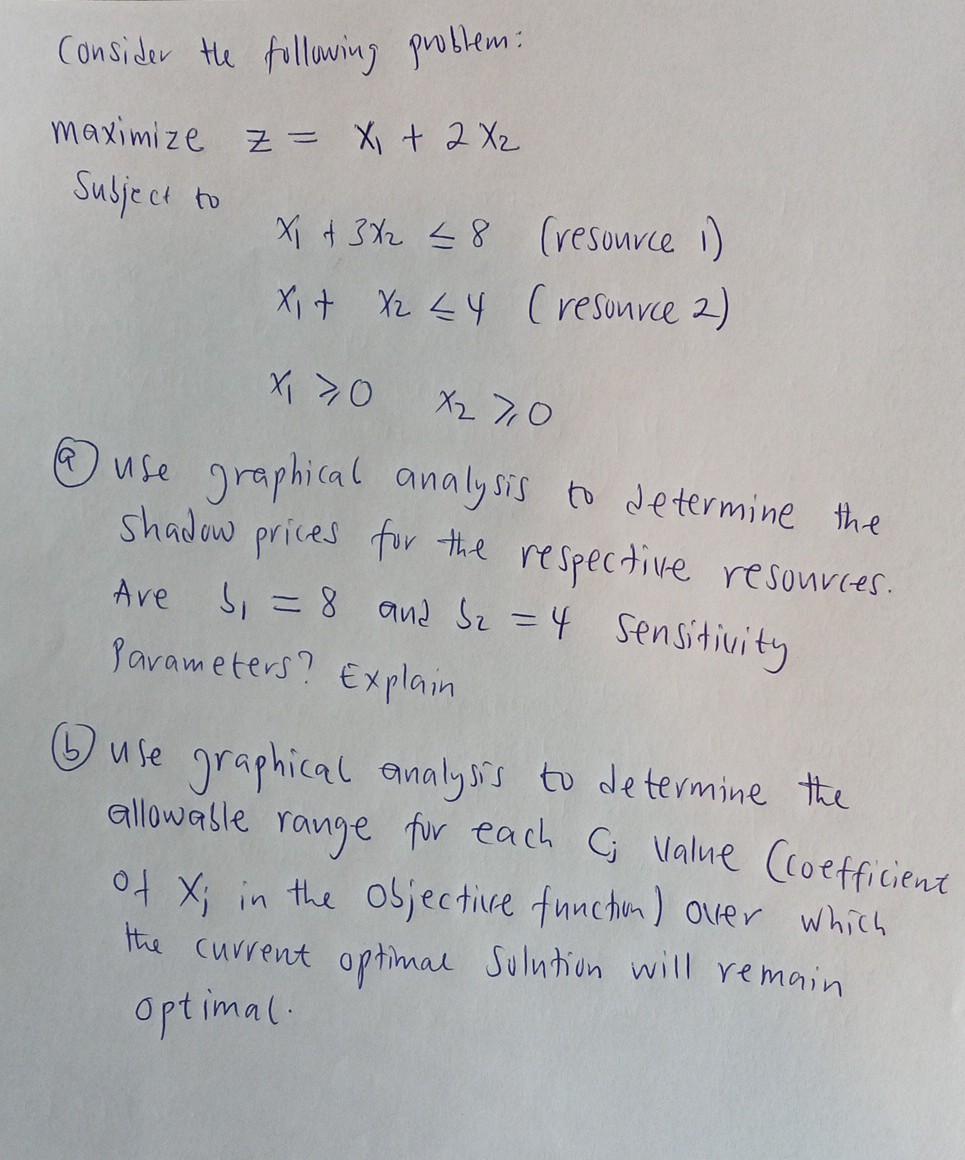 Consider the following problem:
maximize z = x₁ + 2x₂
Subject to
x₁ + 3x₂ ≤ 8 (resource 1)
x₁ + x₂ ≤ 4 (resource 2)
x₁ ≥ 0 x₂ ≥ 0
ⓐ use graphical analysis to determine the
shadow prices for the respective resources.
Are b₁ = 8 and b₂ = 4 sensitivity
Parameters? Explain
ⓑ use graphical analysis to determine the
allowable range for each Cⱼ value (coefficient
of Xⱼ in the objective function) over which
the current optimal solution will remain
optimal.